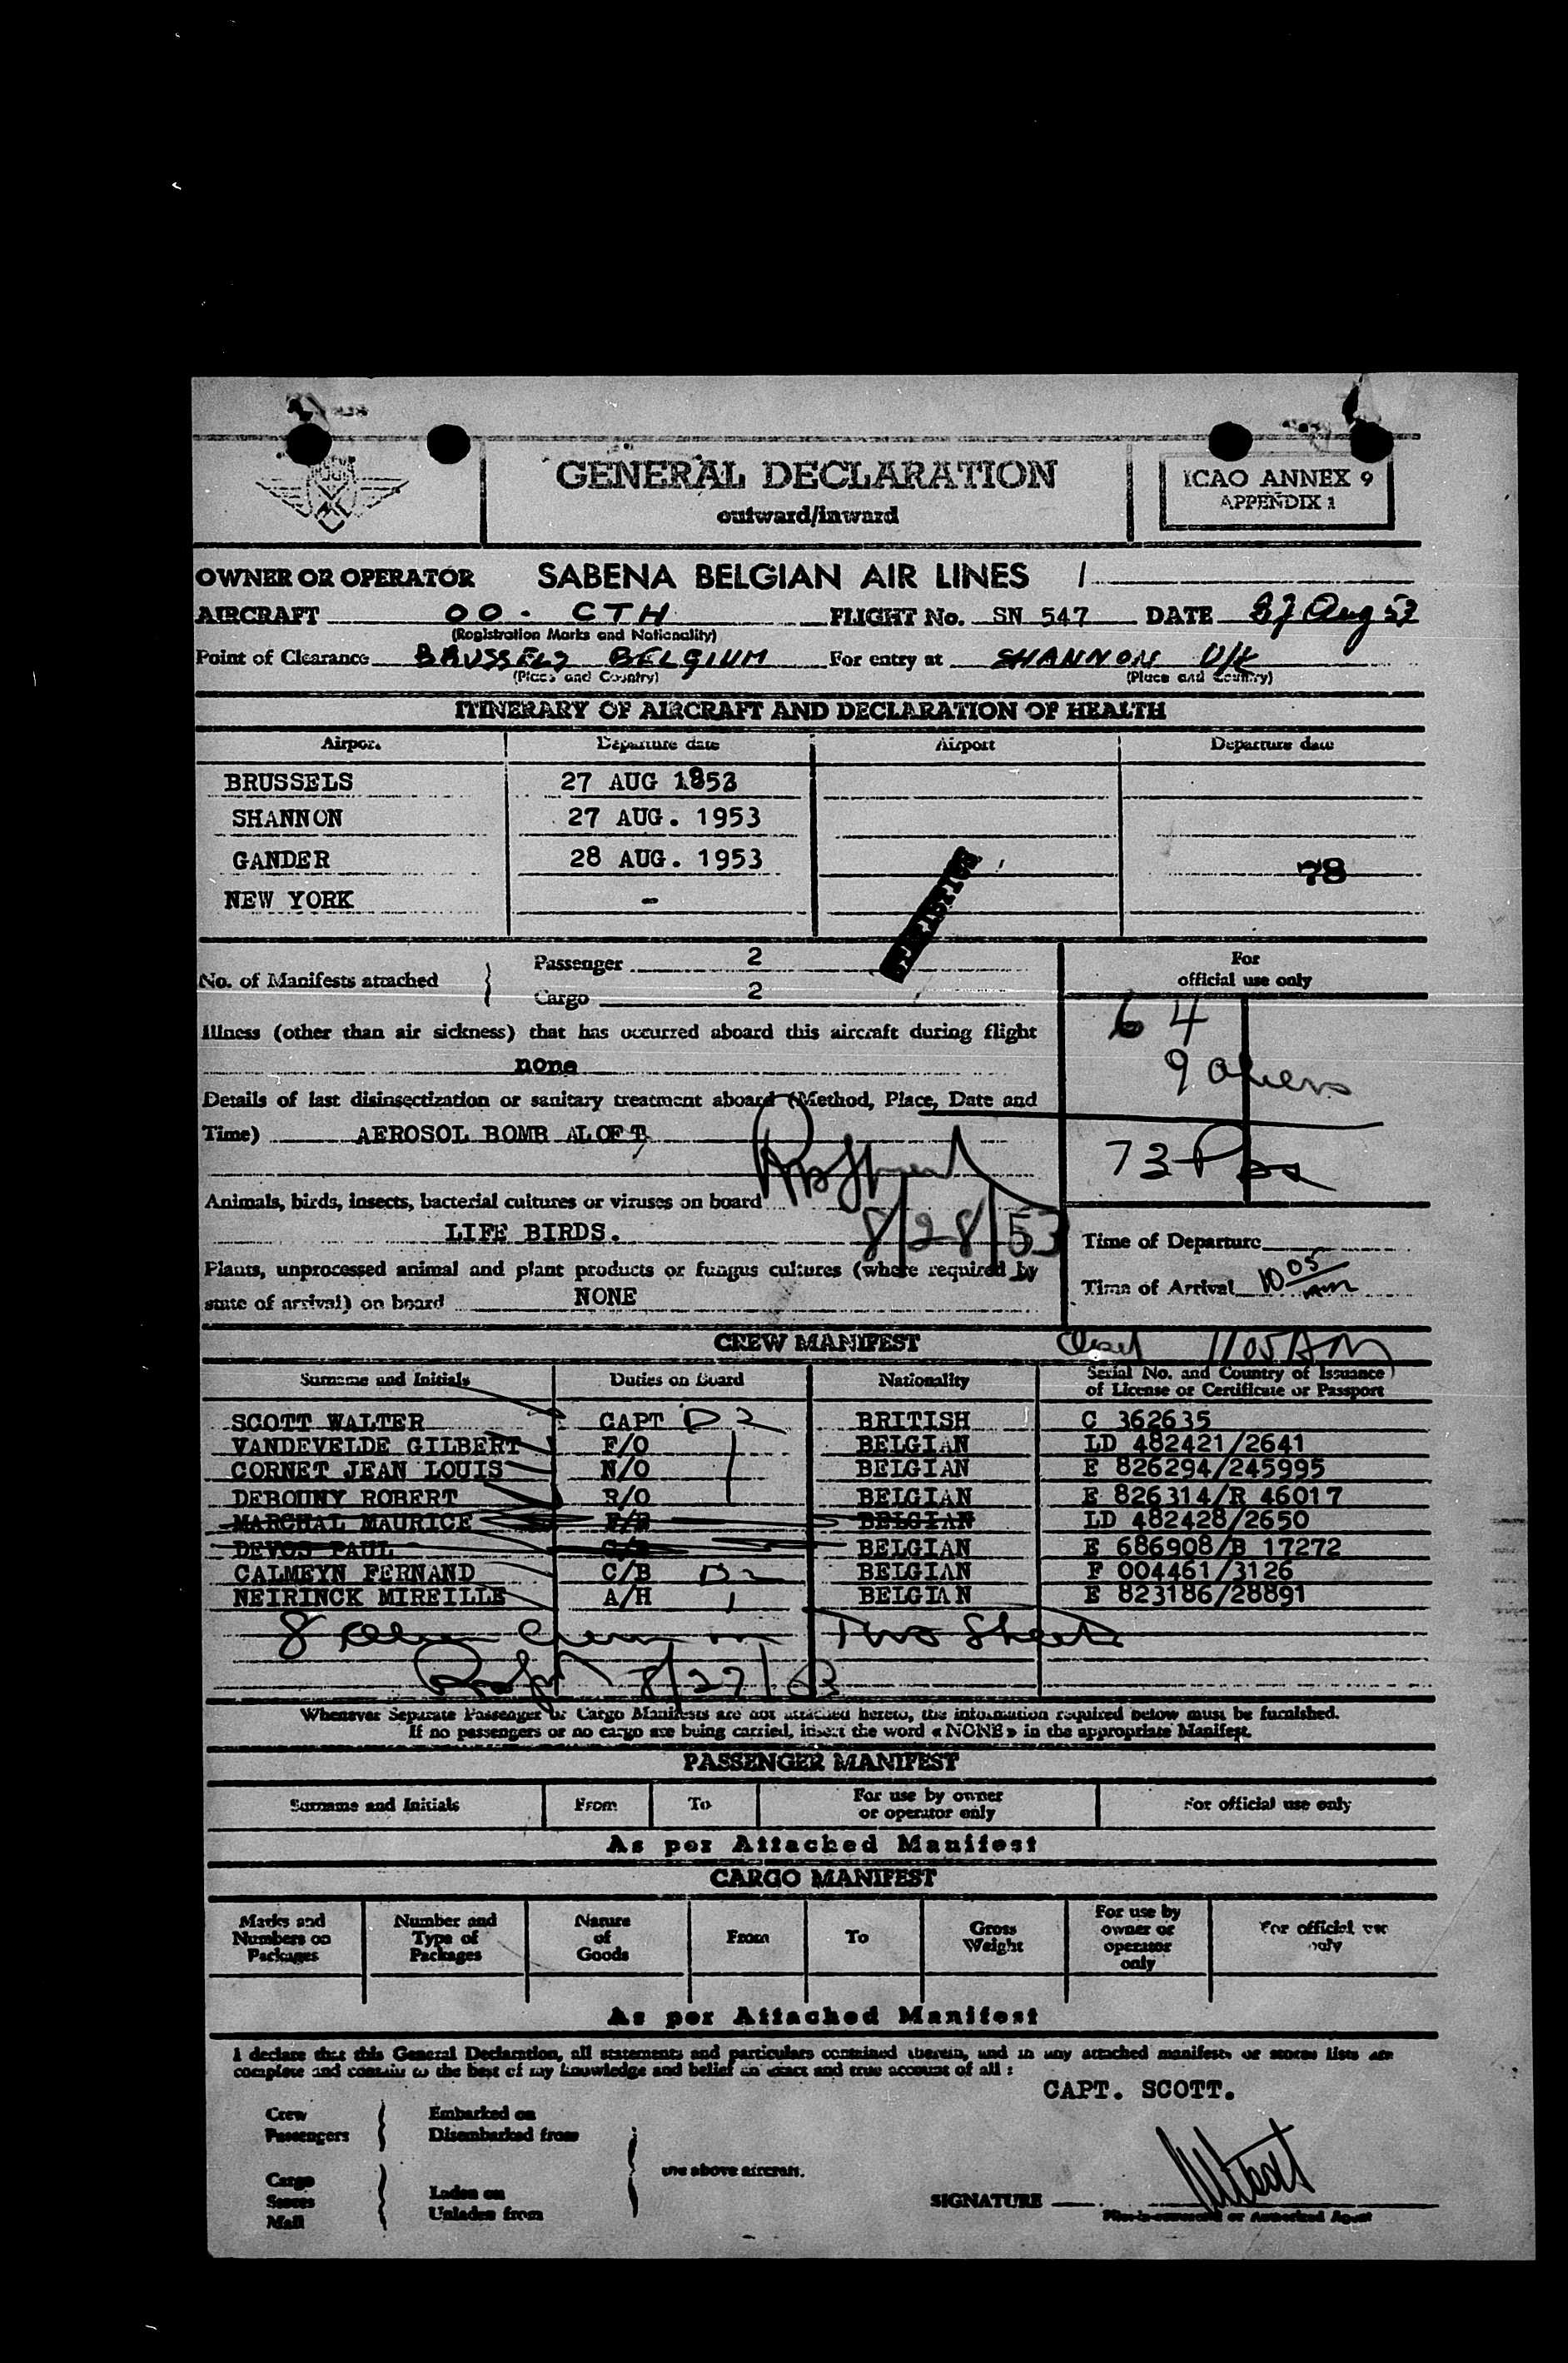 GENERAL DECLARATION
outward/inward
ICAO ANNEX 9
APPENDIX 1
OWNER OR OPERATOR SABENA BELGIAN AIR LINES 1
AIRCRAFT OO - CTH FLIGHT No. SN 547 DATE 27 Aug 53
(Registration Marks and Nationality)
Point of Clearance BRUSSELS BELGIUM For entry at SHANNON U/K
(Place and Country) (Place and Country)
ITINERARY OF AIRCRAFT AND DECLARATION OF HEALTH
Airport Departure date Airport Departure date
BRUSSELS 27 AUG 1953
SHANNON 27 AUG. 1953
GANDER 28 AUG. 1953 78
NEW YORK -
STATISTICS
No. of Manifests attached Passenger 2
Cargo 2
For official use only
64
9 aliens
73
Illness (other than air sickness) that has occurred aboard this aircraft during flight
none
Details of last disinsectization or sanitary treatment aboard (Method, Place, Date and
Time) AEROSOL BOMB ALOFT
Animals, birds, insects, bacterial cultures or viruses on board
LIFE BIRDS. 8/28/53
Time of Departure
Plants, unprocessed animal and plant products or fungus cultures (where required by
state of arrival) on board NONE
Time of Arrival 10 05 AM
CREW MANIFEST 1105 AM
Surname and Initials Duties on Board Nationality Serial No. and Country of Issuance
of License or Certificate or Passport
SCOTT WALTER CAPT D 2 BRITISH C 362635
VANDEVELDE GILBERT F/O BELGIAN LD 482421/2641
CORNET JEAN LOUIS N/O BELGIAN E 826294/245995
DEBOUNY ROBERT R/O BELGIAN E 826314/R 46017
MARCHAL MAURICE F/E BELGIAN LD 482428/2650
DEVOS PAUL BELGIAN E 686908/B 17272
CALMEYN FERNAND C/B D 2 BELGIAN F 004461/3126
NEIRINCK MIREILLE A/H 1 BELGIAN E 823186/28891
8 Alien Crew on Two Sheets
Whenever Separate Passenger or Cargo Manifests are not attached hereto, the information required below must be furnished.
If no passengers or no cargo are being carried, insert the word « NONE » in the appropriate Manifest.
PASSENGER MANIFEST
Surname and Initials From To For use by owner or operator only For official use only
As per Attached Manifest
CARGO MANIFEST
Marks and Numbers on Packages Number and Type of Packages Nature of Goods From To Gross Weight For use by owner or operator only For official use only
As per Attached Manifest
I declare that this General Declaration, all statements and particulars contained therein, and in any attached manifests or stores lists are
complete and contain to the best of my knowledge and belief an exact and true account of all :
CAPT. SCOTT.
Crew Embarked on
Passengers Disembarked from
the above aircraft.
Cargo
Stores Laden on
Mail Unladen from
SIGNATURE
Pilot-in-command or Authorized Agent